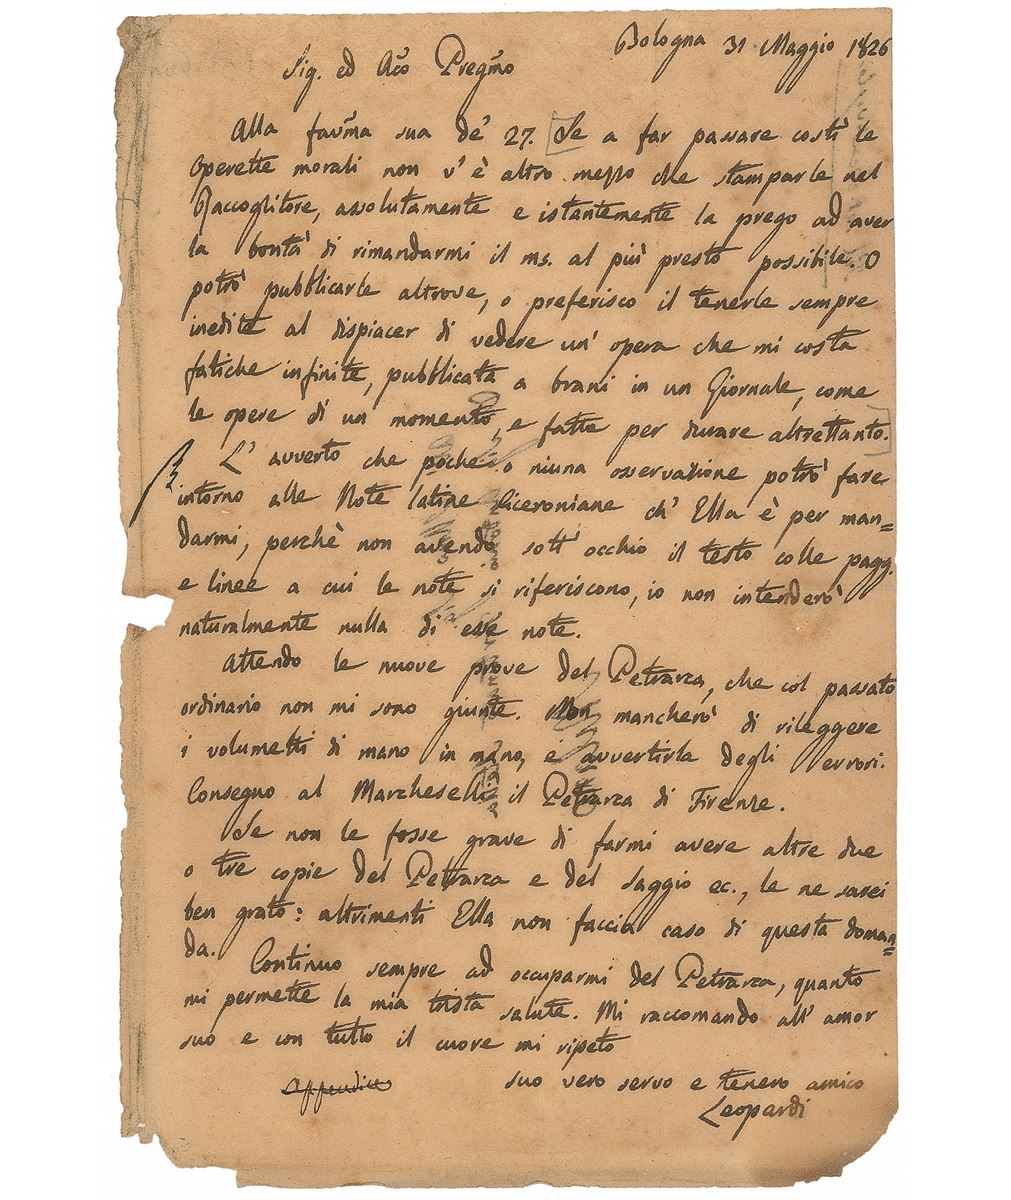 Bologna 31 Maggio 1826
Sig. ed Aco Pregmo
Alla favma sua de' 27. Se a far passare costì le
Operette morali non v'è altro mezzo che stamparle nel
Raccoglitore, assolutamente e istantemente la prego ad aver
la bontà di rimandarmi il ms. al più presto possibile. O
potrò pubblicarle altrove, o preferisco il tenerle sempre
inedite al dispiacer di vedere un' opera che mi costa
fatiche infinite, pubblicata a brani in un Giornale, come
le opere di un momento, e fatte per durare altrettanto.
L' avverto che poche o niuna osservazione potrò fare
intorno alle Note latine Ciceroniane ch' Ella è per man=
darmi, perchè non avendo sott' occhio il testo colle pagg.
e linee a cui le note si riferiscono, io non intenderò
naturalmente nulla di esse note.
Attendo le nuove prove del Petrarca, che col passato
ordinario non mi sono giunte. Non mancherò di rileggere
i volumetti di mano in mano, e avvertirla degli errori.
Consegno al Marcheselli il Petrarca di Firenze.
Se non le fosse grave di farmi avere altre due
o tre copie del Petrarca e del Saggio ec., le ne sarei
ben grato: altrimenti Ella non faccia caso di questa doman=
da. Continuo sempre ad occuparmi del Petrarca, quanto
mi permette la mia trista salute. Mi raccomando all' amor
suo e con tutto il cuore mi ripeto
suo vero servo e tenero amico
Appendice
Leopardi